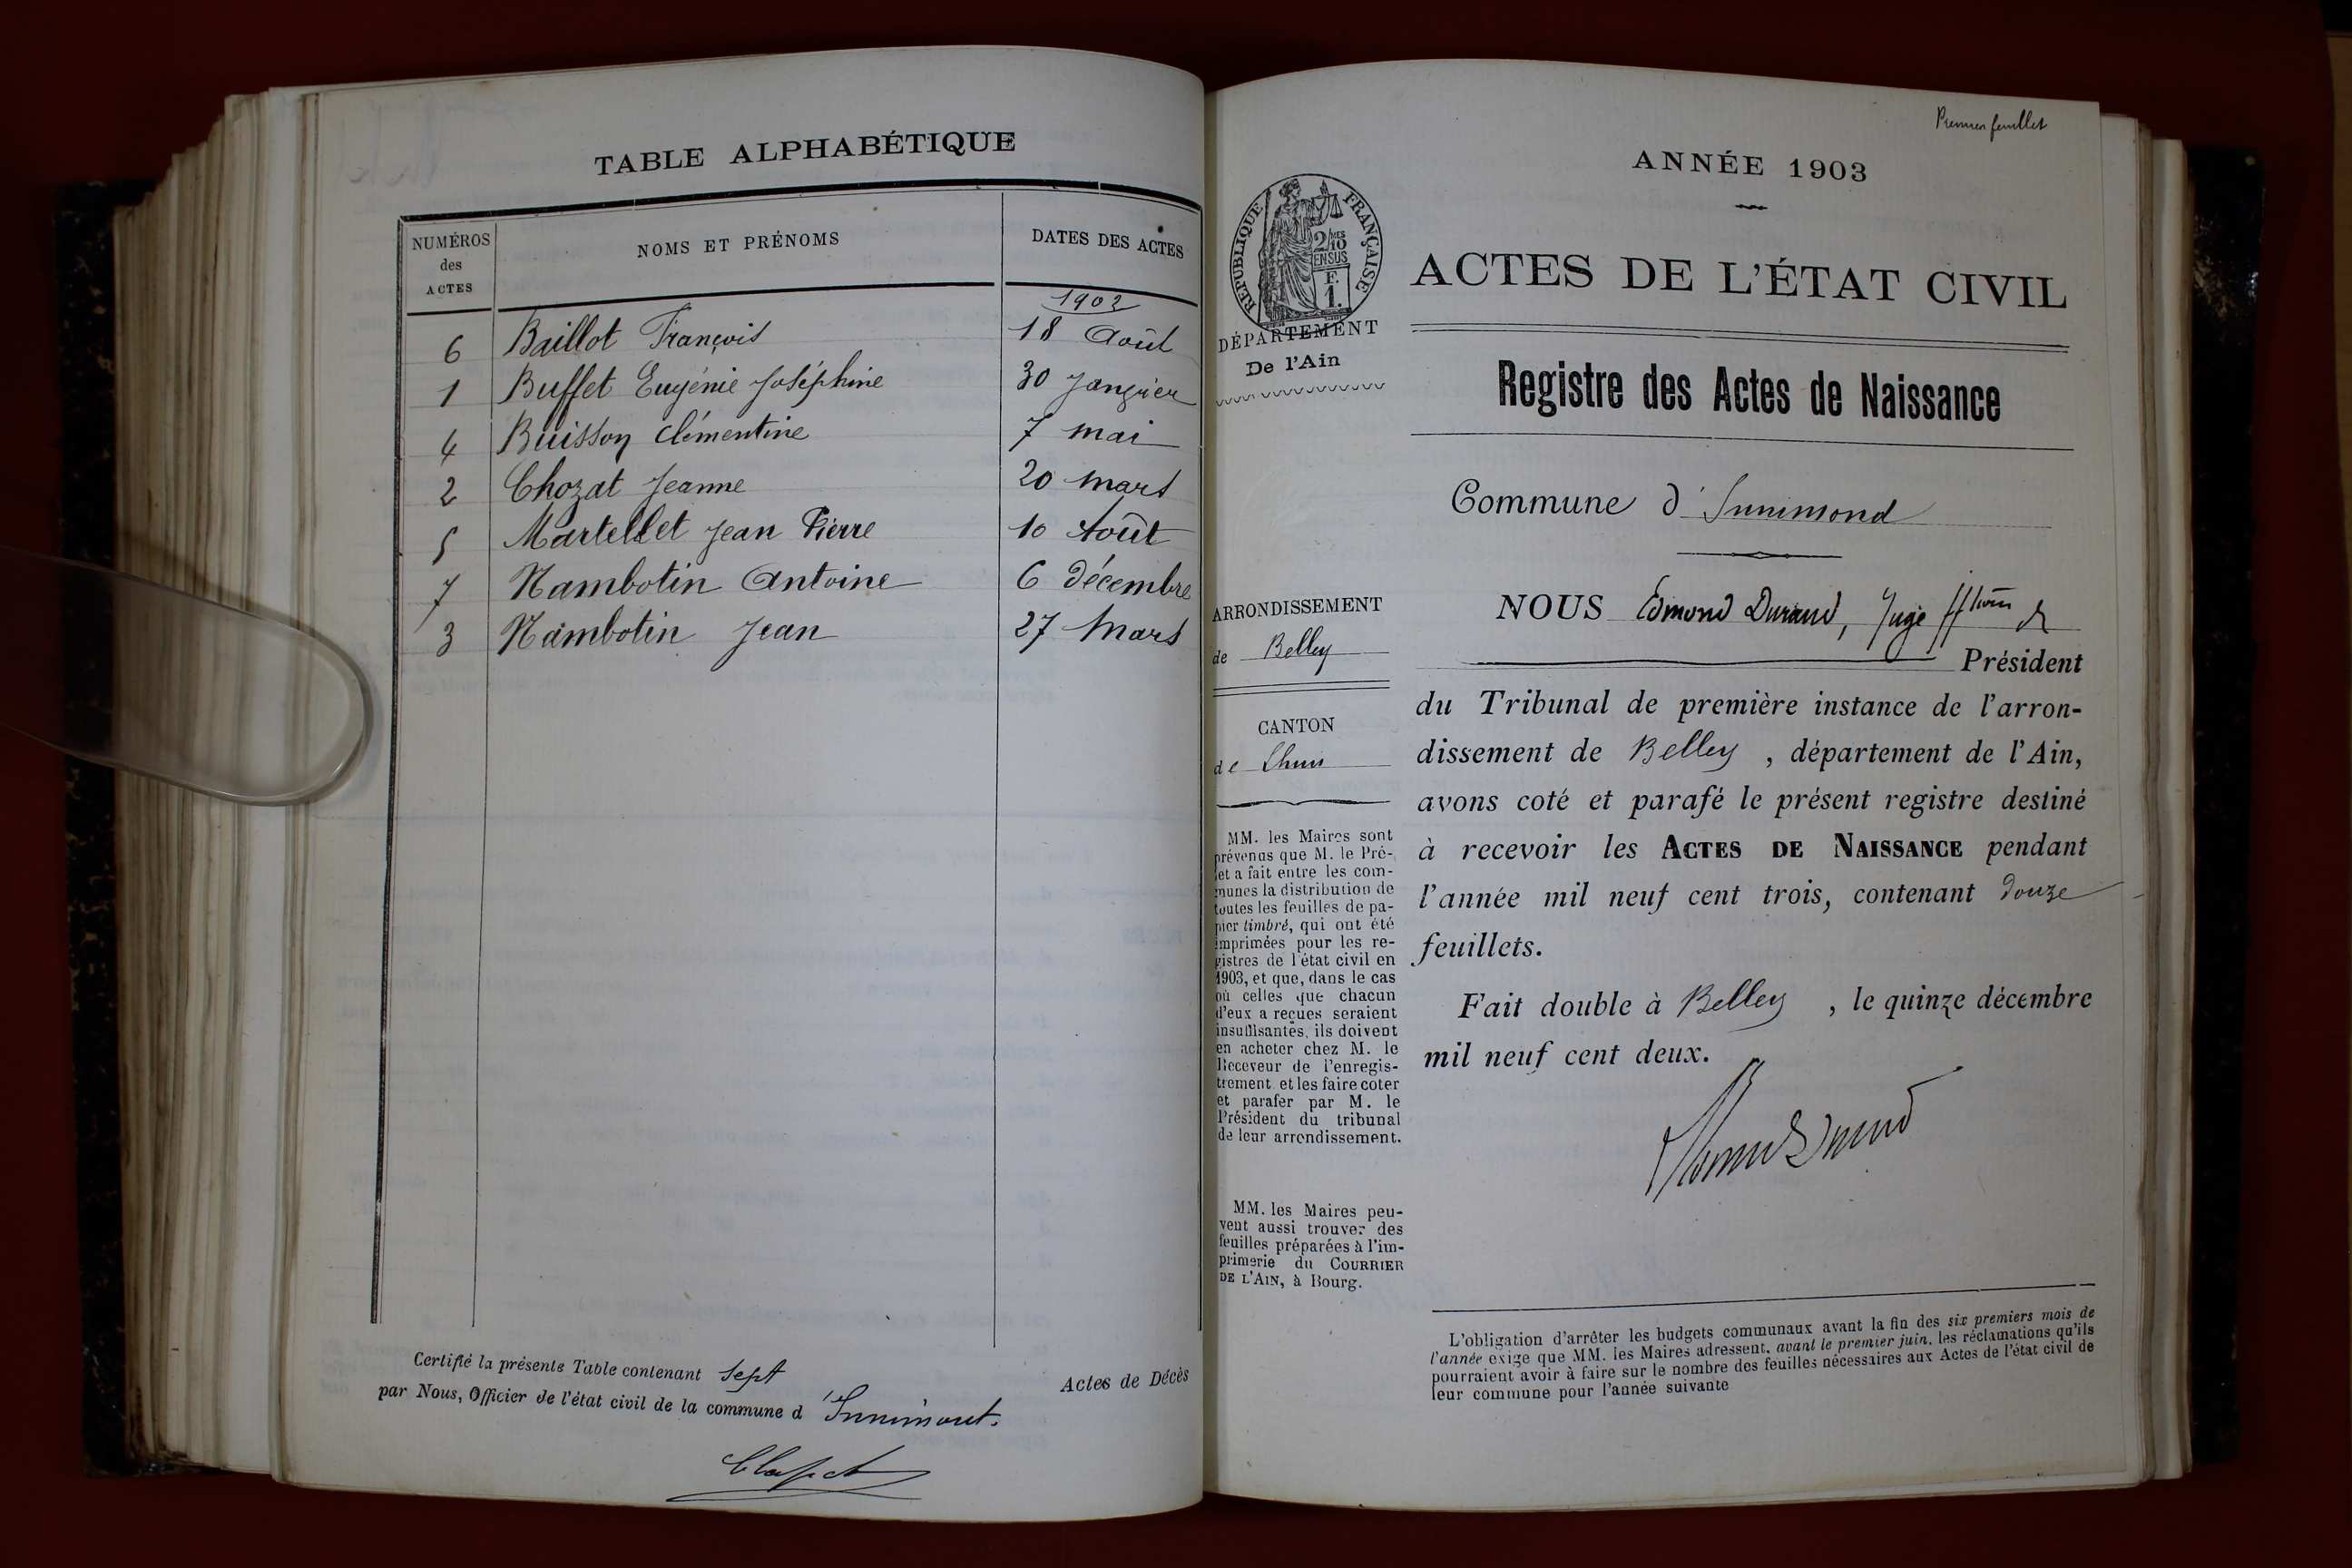 TABLE ALPHABÉTIQUE
NUMÉROS
des
ACTES
NOMS ET PRÉNOMS
DATES DES ACTES
1902
6 Baillot François 18 Août
1 Buffet Eugénie Joséphine 30 Janvier
4 Buisson Clémentine 7 mai
2 Chozat Jeanne 20 mars
5 Martellet Jean Pierre 10 Août
7 Nambotin Antoine 6 Décembre
3 Nambotin Jean 27 Mars
Certifié la présente Table contenant sept Actes de Décès
par Nous, Officier de l'état civil de la commune d'Innimont.
Premier feuillet
ANNÉE 1903
RÉPUBLIQUE FRANÇAISE
2/10MES
EN SUS
F.
1.
DÉPARTEMENT
De l'Ain
ACTES DE L'ÉTAT CIVIL
Registre des Actes de Naissance
Commune d'Innimond
ARRONDISSEMENT
de Belley
CANTON
de Lhuis
MM. les Maires sont
prévenus que M. le Pré-
fet a fait entre les com-
munes la distribution de
toutes les feuilles de pa-
pier timbré, qui ont été
imprimées pour les re-
gistres de l'état civil en
1903, et que, dans le cas
où celles que chacun
d'eux a reçues seraient
insuffisantes, ils doivent
en acheter chez M. le
Receveur de l'enregis-
trement et les faire coter
et parafer par M. le
Président du tribunal
de leur arrondissement.
MM. les Maires peu-
vent aussi trouver des
feuilles préparées à l'im-
primerie du COURRIER
DE L'AIN, à Bourg.
NOUS Edmond Durand, Juge
Président
du Tribunal de première instance de l'arron-
dissement de Belley, département de l'Ain,
avons coté et parafé le présent registre destiné
à recevoir les ACTES DE NAISSANCE pendant
l'année mil neuf cent trois, contenant douze
feuillets.
Fait double à Belley, le quinze décembre
mil neuf cent deux.
L'obligation d'arrêter les budgets communaux avant la fin des six premiers mois de
l'année exige que MM. les Maires adressent, avant le premier juin, les réclamations qu'ils
pourraient avoir à faire sur le nombre des feuilles nécessaires aux Actes de l'état civil de
leur commune pour l'année suivante